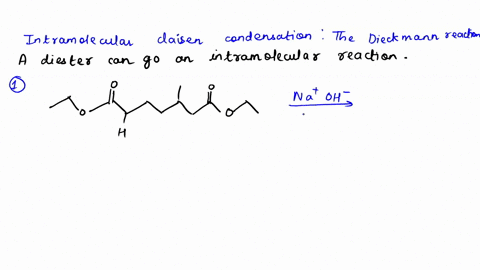 Intramolecular claisen condensation : The Dieckmann reaction
A diester can go an intramolecular reaction.
1
O O
O O
H
Na+ OH-